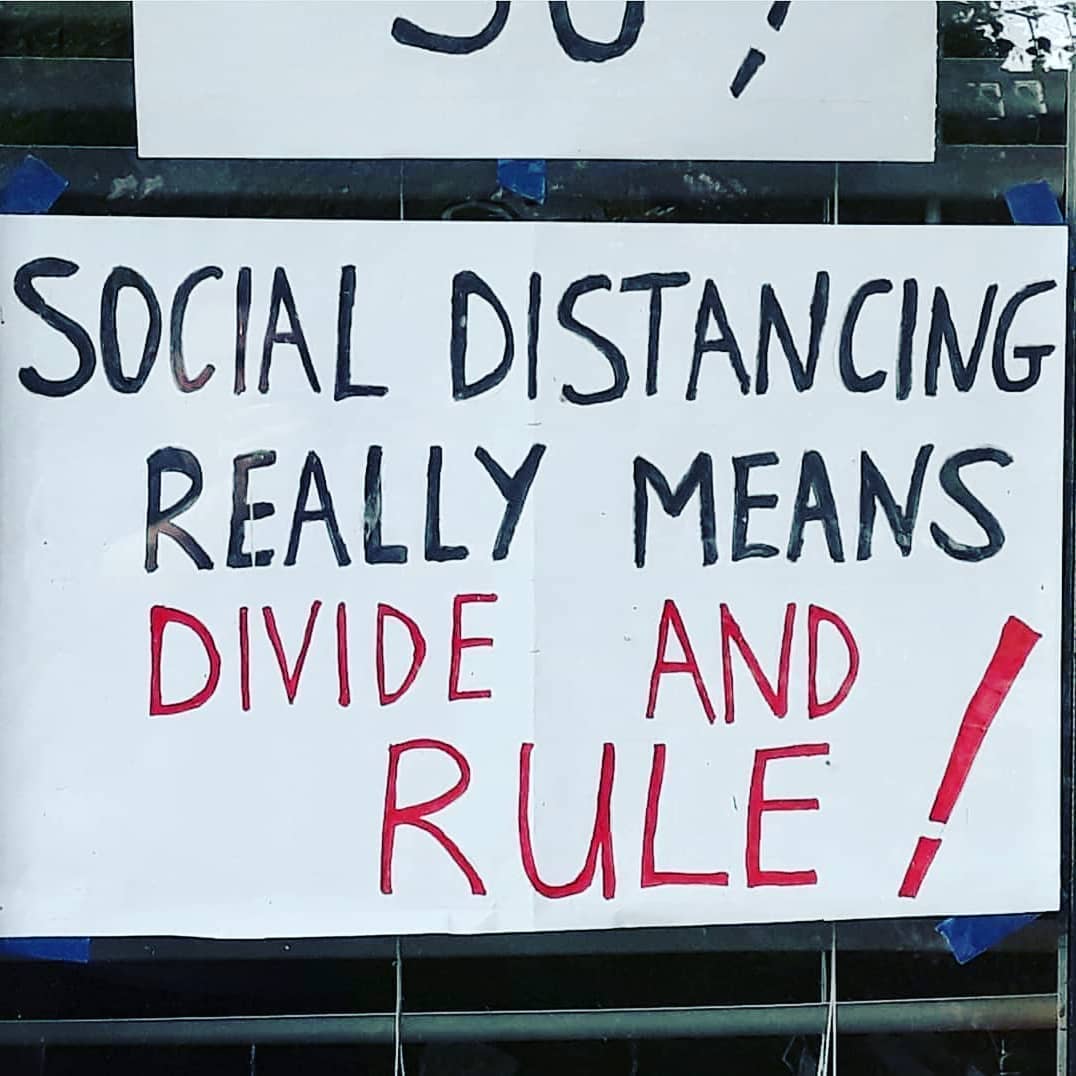 SOCIAL DISTANCING
REALLY MEANS
DIVIDE AND
RULE!